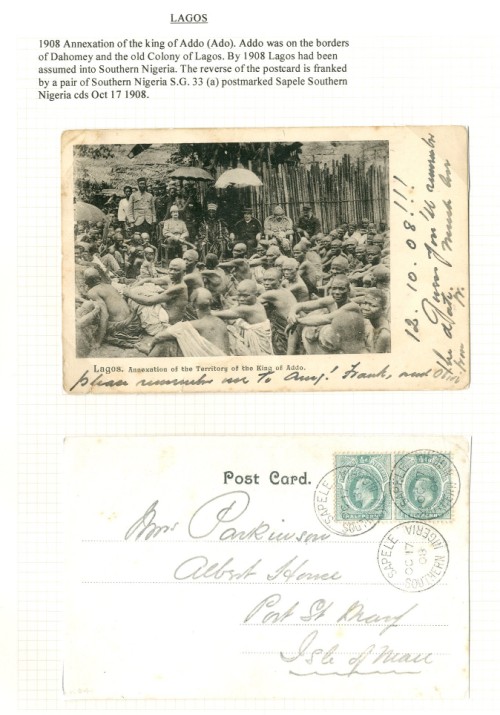 LAGOS
1908 Annexation of the king of Addo (Ado). Addo was on the borders
of Dahomey and the old Colony of Lagos. By 1908 Lagos had been
assumed into Southern Nigeria. The reverse of the postcard is franked
by a pair of Southern Nigeria S.G. 33 (a) postmarked Sapele Southern
Nigeria cds Oct 17 1908.
12.10.08!!!
the date.
Lagos. Annexation of the Territory of the King of Addo.
please remember me to Amy! Frank, and
Post Card.
SAPELE
SOUTHERN NIGERIA
OC 17
08
Parkinson
Albert House
Port St Mary
Isle of Man